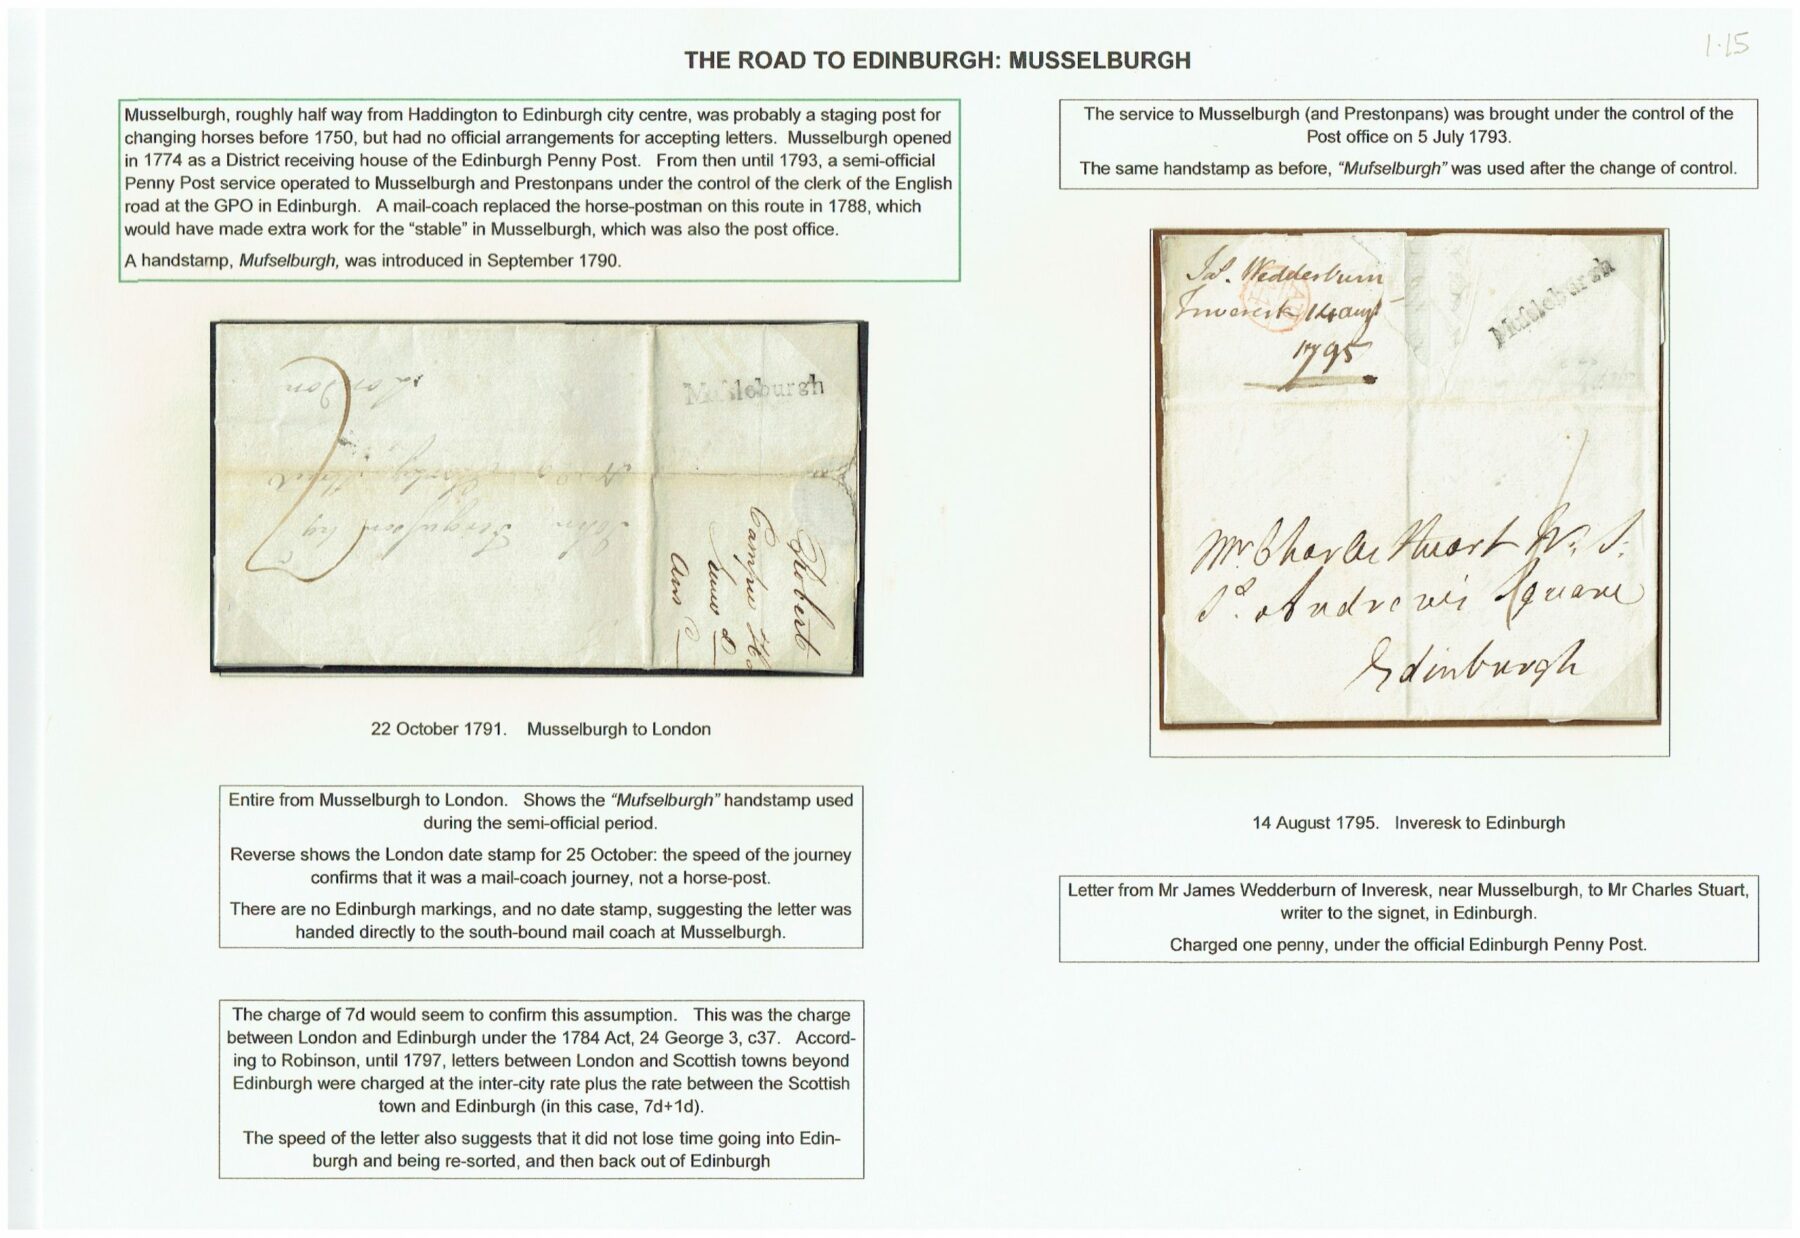 1.15
THE ROAD TO EDINBURGH: MUSSELBURGH
Musselburgh, roughly half way from Haddington to Edinburgh city centre, was probably a staging post for
changing horses before 1750, but had no official arrangements for accepting letters. Musselburgh opened
in 1774 as a District receiving house of the Edinburgh Penny Post. From then until 1793, a semi-official
Penny Post service operated to Musselburgh and Prestonpans under the control of the clerk of the English
road at the GPO in Edinburgh. A mail-coach replaced the horse-postman on this route in 1788, which
would have made extra work for the “stable” in Musselburgh, which was also the post office.
A handstamp, Mufselburgh, was introduced in September 1790.
Mufsleburgh
London
7
John
Robert
22 October 1791. Musselburgh to London
Entire from Musselburgh to London. Shows the “Mufselburgh” handstamp used
during the semi-official period.
Reverse shows the London date stamp for 25 October: the speed of the journey
confirms that it was a mail-coach journey, not a horse-post.
There are no Edinburgh markings, and no date stamp, suggesting the letter was
handed directly to the south-bound mail coach at Musselburgh.
The charge of 7d would seem to confirm this assumption. This was the charge
between London and Edinburgh under the 1784 Act, 24 George 3, c37. Accord-
ing to Robinson, until 1797, letters between London and Scottish towns beyond
Edinburgh were charged at the inter-city rate plus the rate between the Scottish
town and Edinburgh (in this case, 7d+1d).
The speed of the letter also suggests that it did not lose time going into Edin-
burgh and being re-sorted, and then back out of Edinburgh
The service to Musselburgh (and Prestonpans) was brought under the control of the
Post office on 5 July 1793.
The same handstamp as before, “Mufselburgh” was used after the change of control.
Jas. Wedderburn
Inveresk 14 augt
1795
Mufsleburgh
1
Mr Charles Stuart W. S.
St. Andrews Square
Edinburgh
14 August 1795. Inveresk to Edinburgh
Letter from Mr James Wedderburn of Inveresk, near Musselburgh, to Mr Charles Stuart,
writer to the signet, in Edinburgh.
Charged one penny, under the official Edinburgh Penny Post.